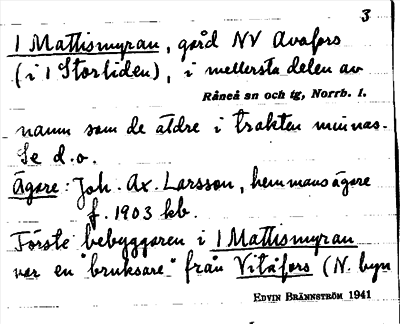 3
1 Mattismyran, gård NV Avafors
(i 1 Storliden), i mellersta delen av
Råneå sn och tg, Norrb. l.
namn som de äldre i trakten minnas.
Se d.o.
Ägare: Joh. Ax. Larsson, hemmansägare
f. 1903 hb.
Förste bebyggaren i 1 Mattismyran
var en "bruksare" från Vitåfors (N. byn
EDVIN BRÄNNSTRÖM 1941